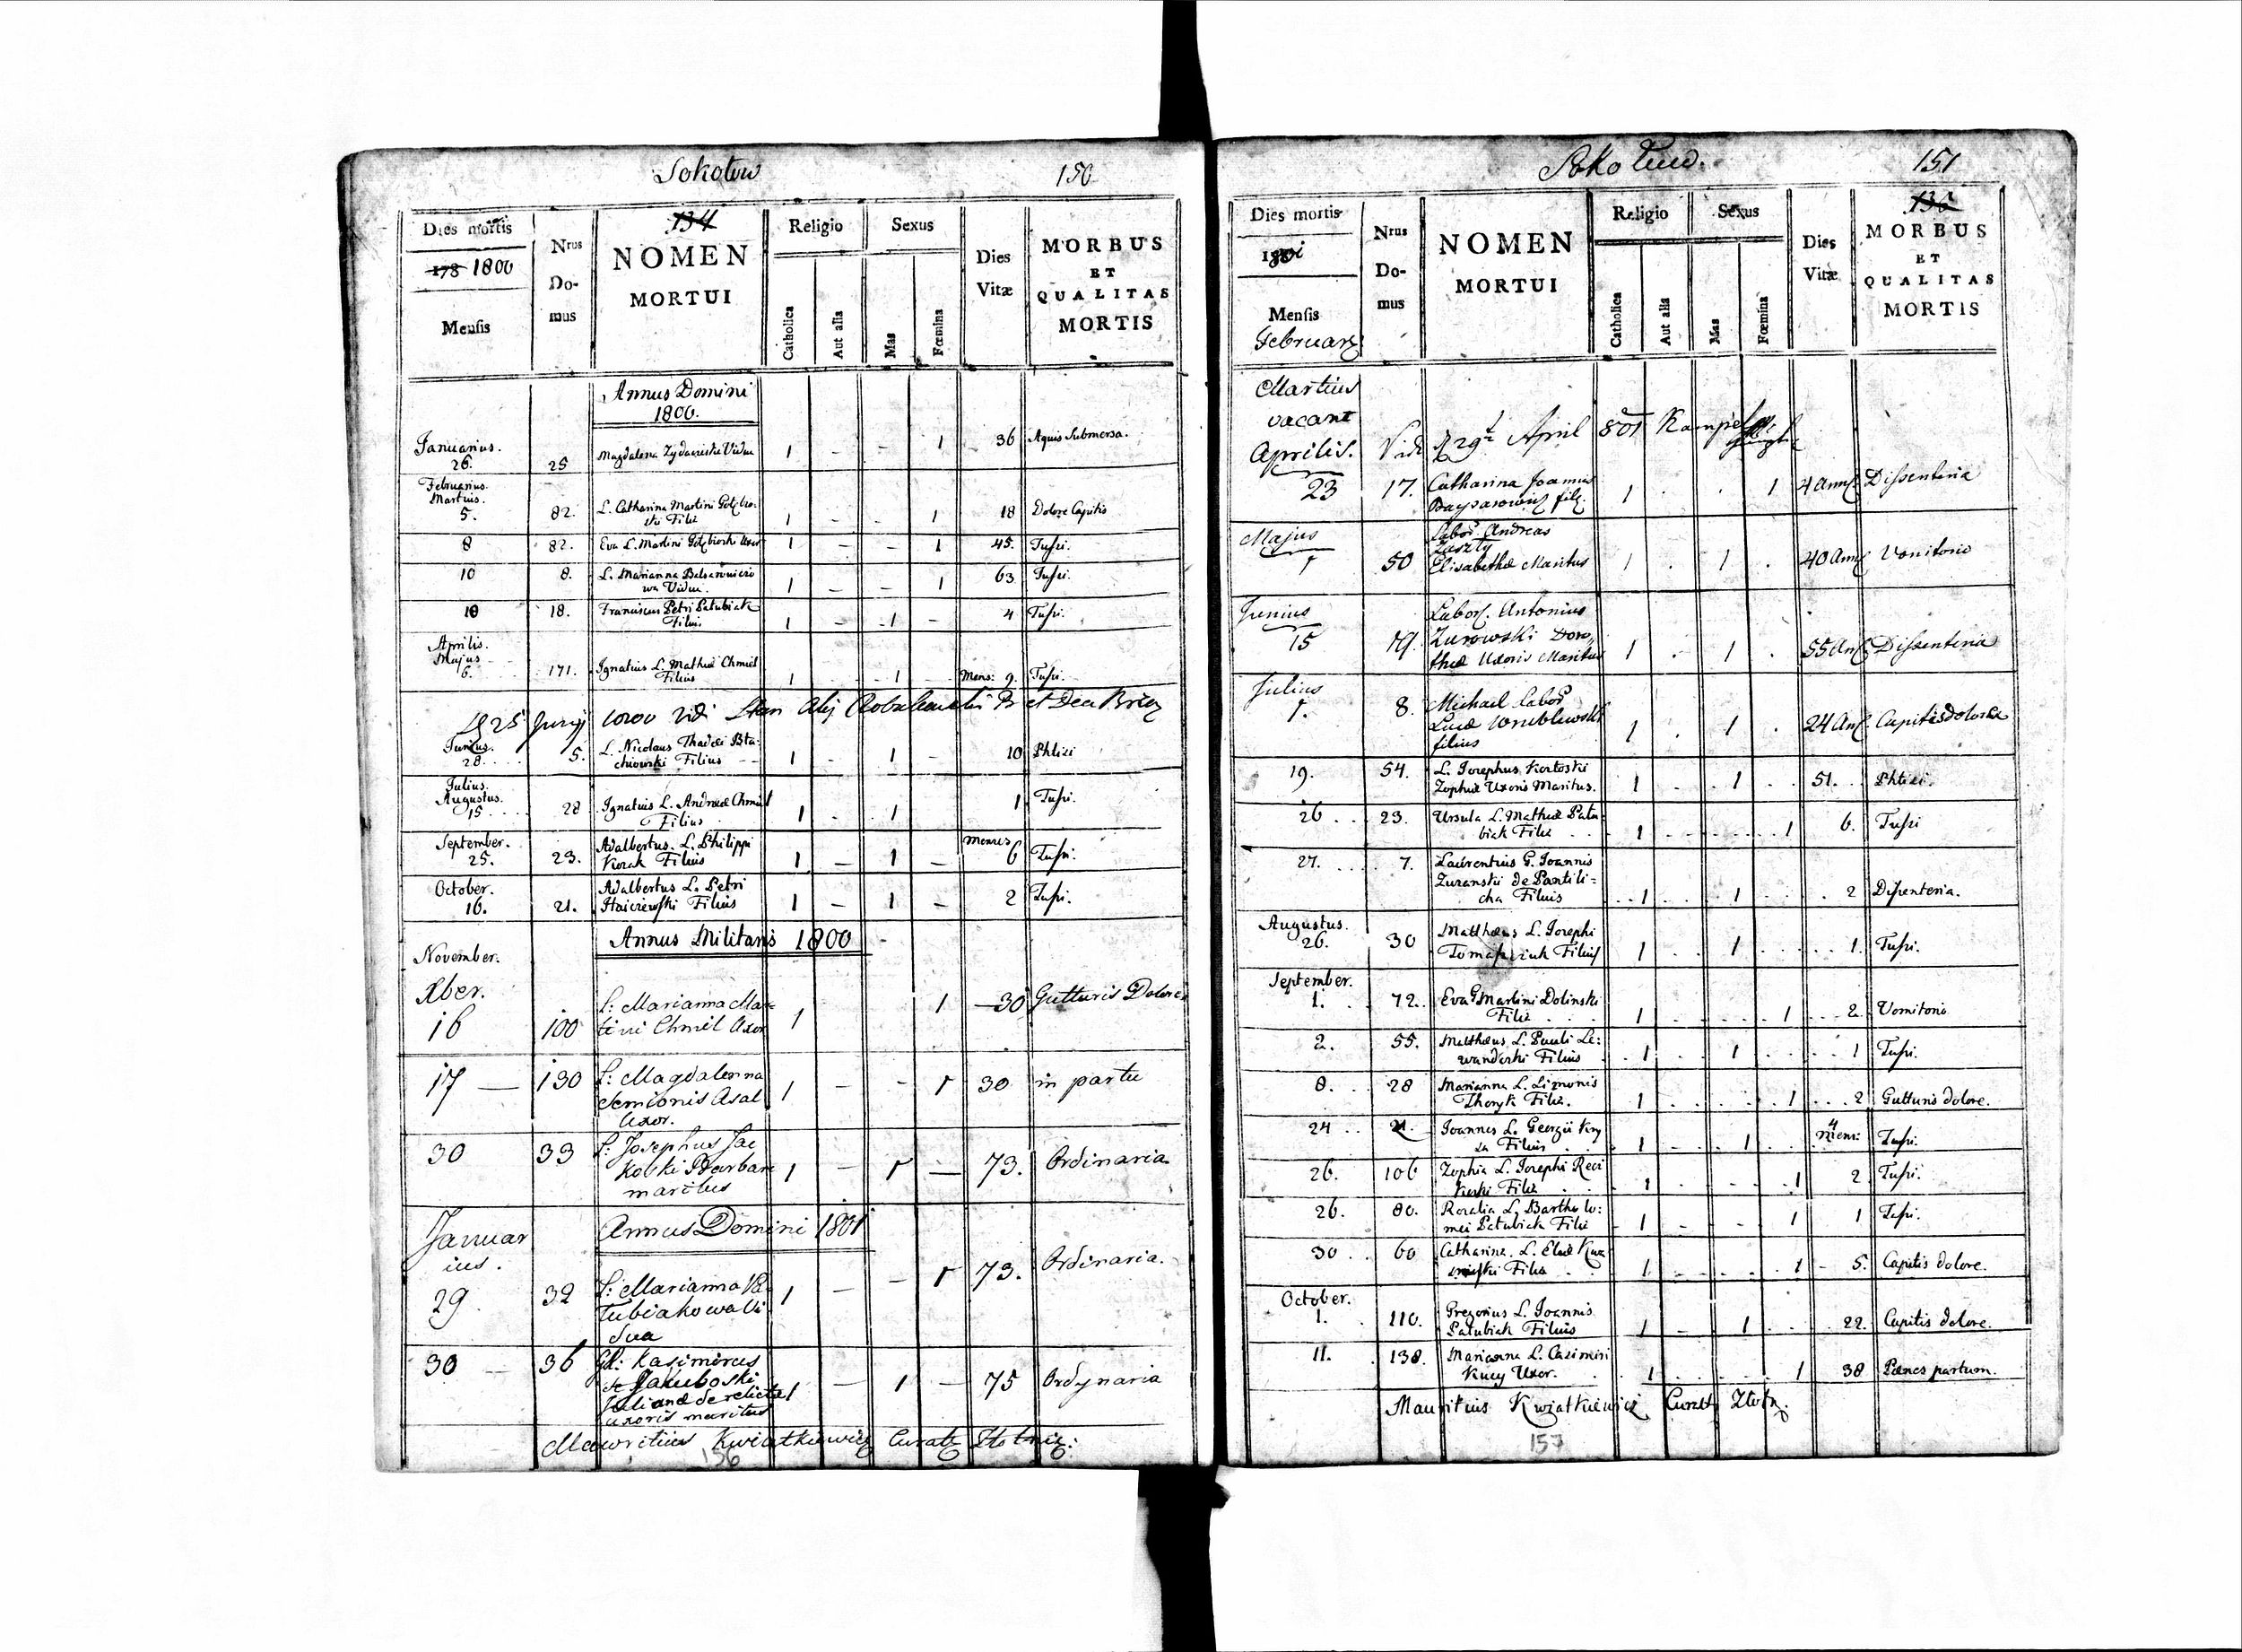 Sokotow 150
Dies mortis
178 1800
Mensis
Nrus
Do-
mus
134
NOMEN
MORTUI
Religio
Catholica
Aut alia
Sexus
Mas
Fœmina
Dies
Vitæ
MORBUS
ET
QUALITAS
MORTIS
Annus Domini
1800.
Januarius.
26. 25 Magdalena Vidua 1 - - 1 36 Aquis Submersa.
Februarius.
Martius.
5. 82. L. Catharina Martini
Filia 1 - - 1 18 Dolore Capitis
8 82. Eva L. Martini Uxor 1 - - 1 45. Tussi.
10 8. L. Marianna
Vidua. 1 - - 1 63 Tussi.
10 18. Franciscus Petri Patubiak
Filius. 1 - 1 - 4 Tussi.
Aprilis.
Majus
6. 171. Ignatius L. Mathiæ Chmiel
Filius 1 1 Mens: 9. Tussi.
25 Junij Vidi
Junius.
28. 5. L. Nicolaus Thadæi Bta-
chiowski Filius 1 - 1 - 10 Phtisi
Julius.
Augustus.
15 28 Ignatius L. Andreæ Chmiel
Filius 1 - 1 1 Tussi.
September.
25. 23. Adalbertus. L. Philippi
Kozak Filius 1 - 1 - menses 6 Tussi.
October.
16. 21. Adalbertus L. Petri
Filius 1 - 1 - 2 Tussi.
Annus Militaris 1800
November.
Xber.
16 100 L: Marianna Mar-
tini Chmil Uxor 1 1 30 Gutturis Dolore
17 — 130 L: Magdalenna
Semionis Asal
Uxor. 1 - - 1 30 in partu
30 33 L: Josephus Jac
kobski Barbare
maritus 1 - 1 — 73. Ordinaria
Annus Domini 1801
Januar
ius.
29 32 L: Marianna Pa-
tubiakowa Vi
dua 1 — - 1 73. Ordinaria.
30 — 36 Gd: Kasimirus
de Jakuboski
Julianæ de relicta
uxoris maritus 1 — 1 — 75 Ordynaria
Mauritius Kwiatkiewicz Curatg
156
Sokotow. 151
Dies mortis
1801
Mensis
Nrus
Do-
mus
NOMEN
MORTUI
Religio
Catholica
Aut alia
Sexus
Mas
Fœmina
Dies
Vitæ
136
MORBUS
ET
QUALITAS
MORTIS
Februarg
Martius
vacant
Vidi 29 April 801
Aprilis.
23 17. Catharina Joannis
fil. 1 . . 1 4 ann. Dissenteria
Majus
1 50 Labor. Andreas
Zaszty
Elisabethæ Maritus 1 . 1 . 40 ann Vomitorio
Junius
15 Labor. Antonius
Zurowski Doro-
theæ Uxoris Maritus 1 . 1 . 55 An. Dissenteria
Julius
1. 8. Michael Labor
Lucæ Wrublewski
filius 1 . 1 . 24 An. Capitis dolore
19. 54. L. Josephus Kortoski
Zophiæ Uxoris Maritus. 1 . 1 . 51. Phtisi.
26 23. Ursula L. Mathiæ Patu-
biak Filia 1 1 6. Tussi
27. 7. Laurentius G. Joannis
Zuranski de Pantili=
cha Filius 1 1 2 Dissenteria.
Augustus.
26. 30 Matthæus L. Josephi
Filius 1 1 1. Tussi.
September.
1. 72. Eva G Martini Dolinski
Filia 1 1 2 Vomitorio
2. 55. Matthæus L. Pauli Le:
wanderski Filius 1 1 1 Tussi.
8. 28 Marianna L. Simonis
Filia. 1 1 2 Gutturis dolore.
24 21. Joannes L. Georgii Kry
sa Filius 1 1 4 mens: Tussi.
26. 106 Zophia L. Josephi
Filia 1 1 2 Tussi.
26. 80. Rozalia L. Bartholo:
mei Patubiak Filia 1 1 1 Tussi.
30 60 Catharina. L. Eliæ
Filia 1 1 5. Capitis dolore.
October.
1. 110. Gregorius L. Joannis
Patubiak Filius 1 1 22. Capitis dolore.
11. 138. Marianna L. Casimiri
Kucy Uxor. 1 1 38 Pænes partum.
Mauritius Kwiatkiewicz Curatg
157